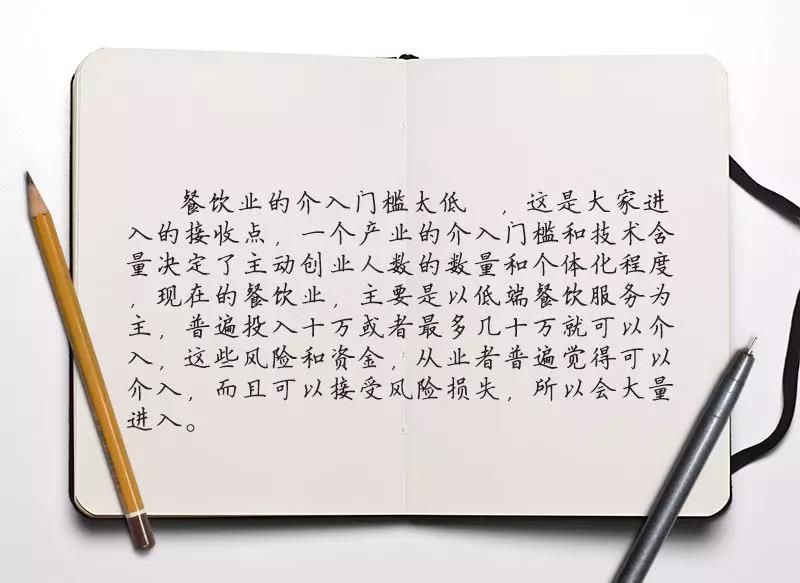 餐饮业的介入门槛太低 ，这是大家进
入的接收点，一个产业的介入门槛和技术含
量决定了主动创业人数的数量和个体化程度
，现在的餐饮业，主要是以低端餐饮服务为
主，普遍投入十万或者最多几十万就可以介
入，这些风险和资金，从业者普遍觉得可以
介入，而且可以接受风险损失，所以会大量
进入。